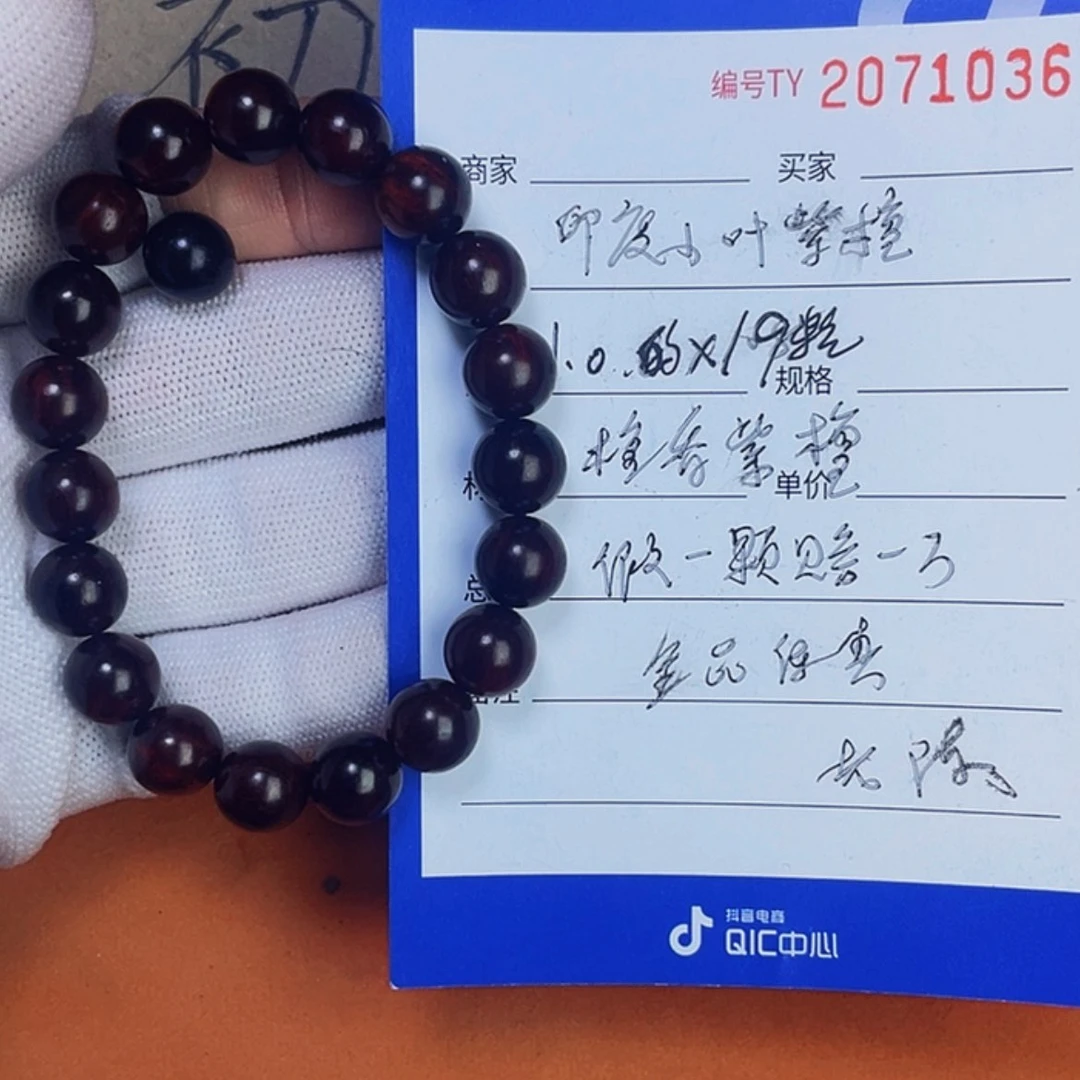 初
编号TY 2071036
商家 买家
印度小叶紫檀
1.0 的x19颗
规格
檀香紫檀
单价
总
假一颗赔一万
备注
金品保真
老陈
抖音电商
QIC中心